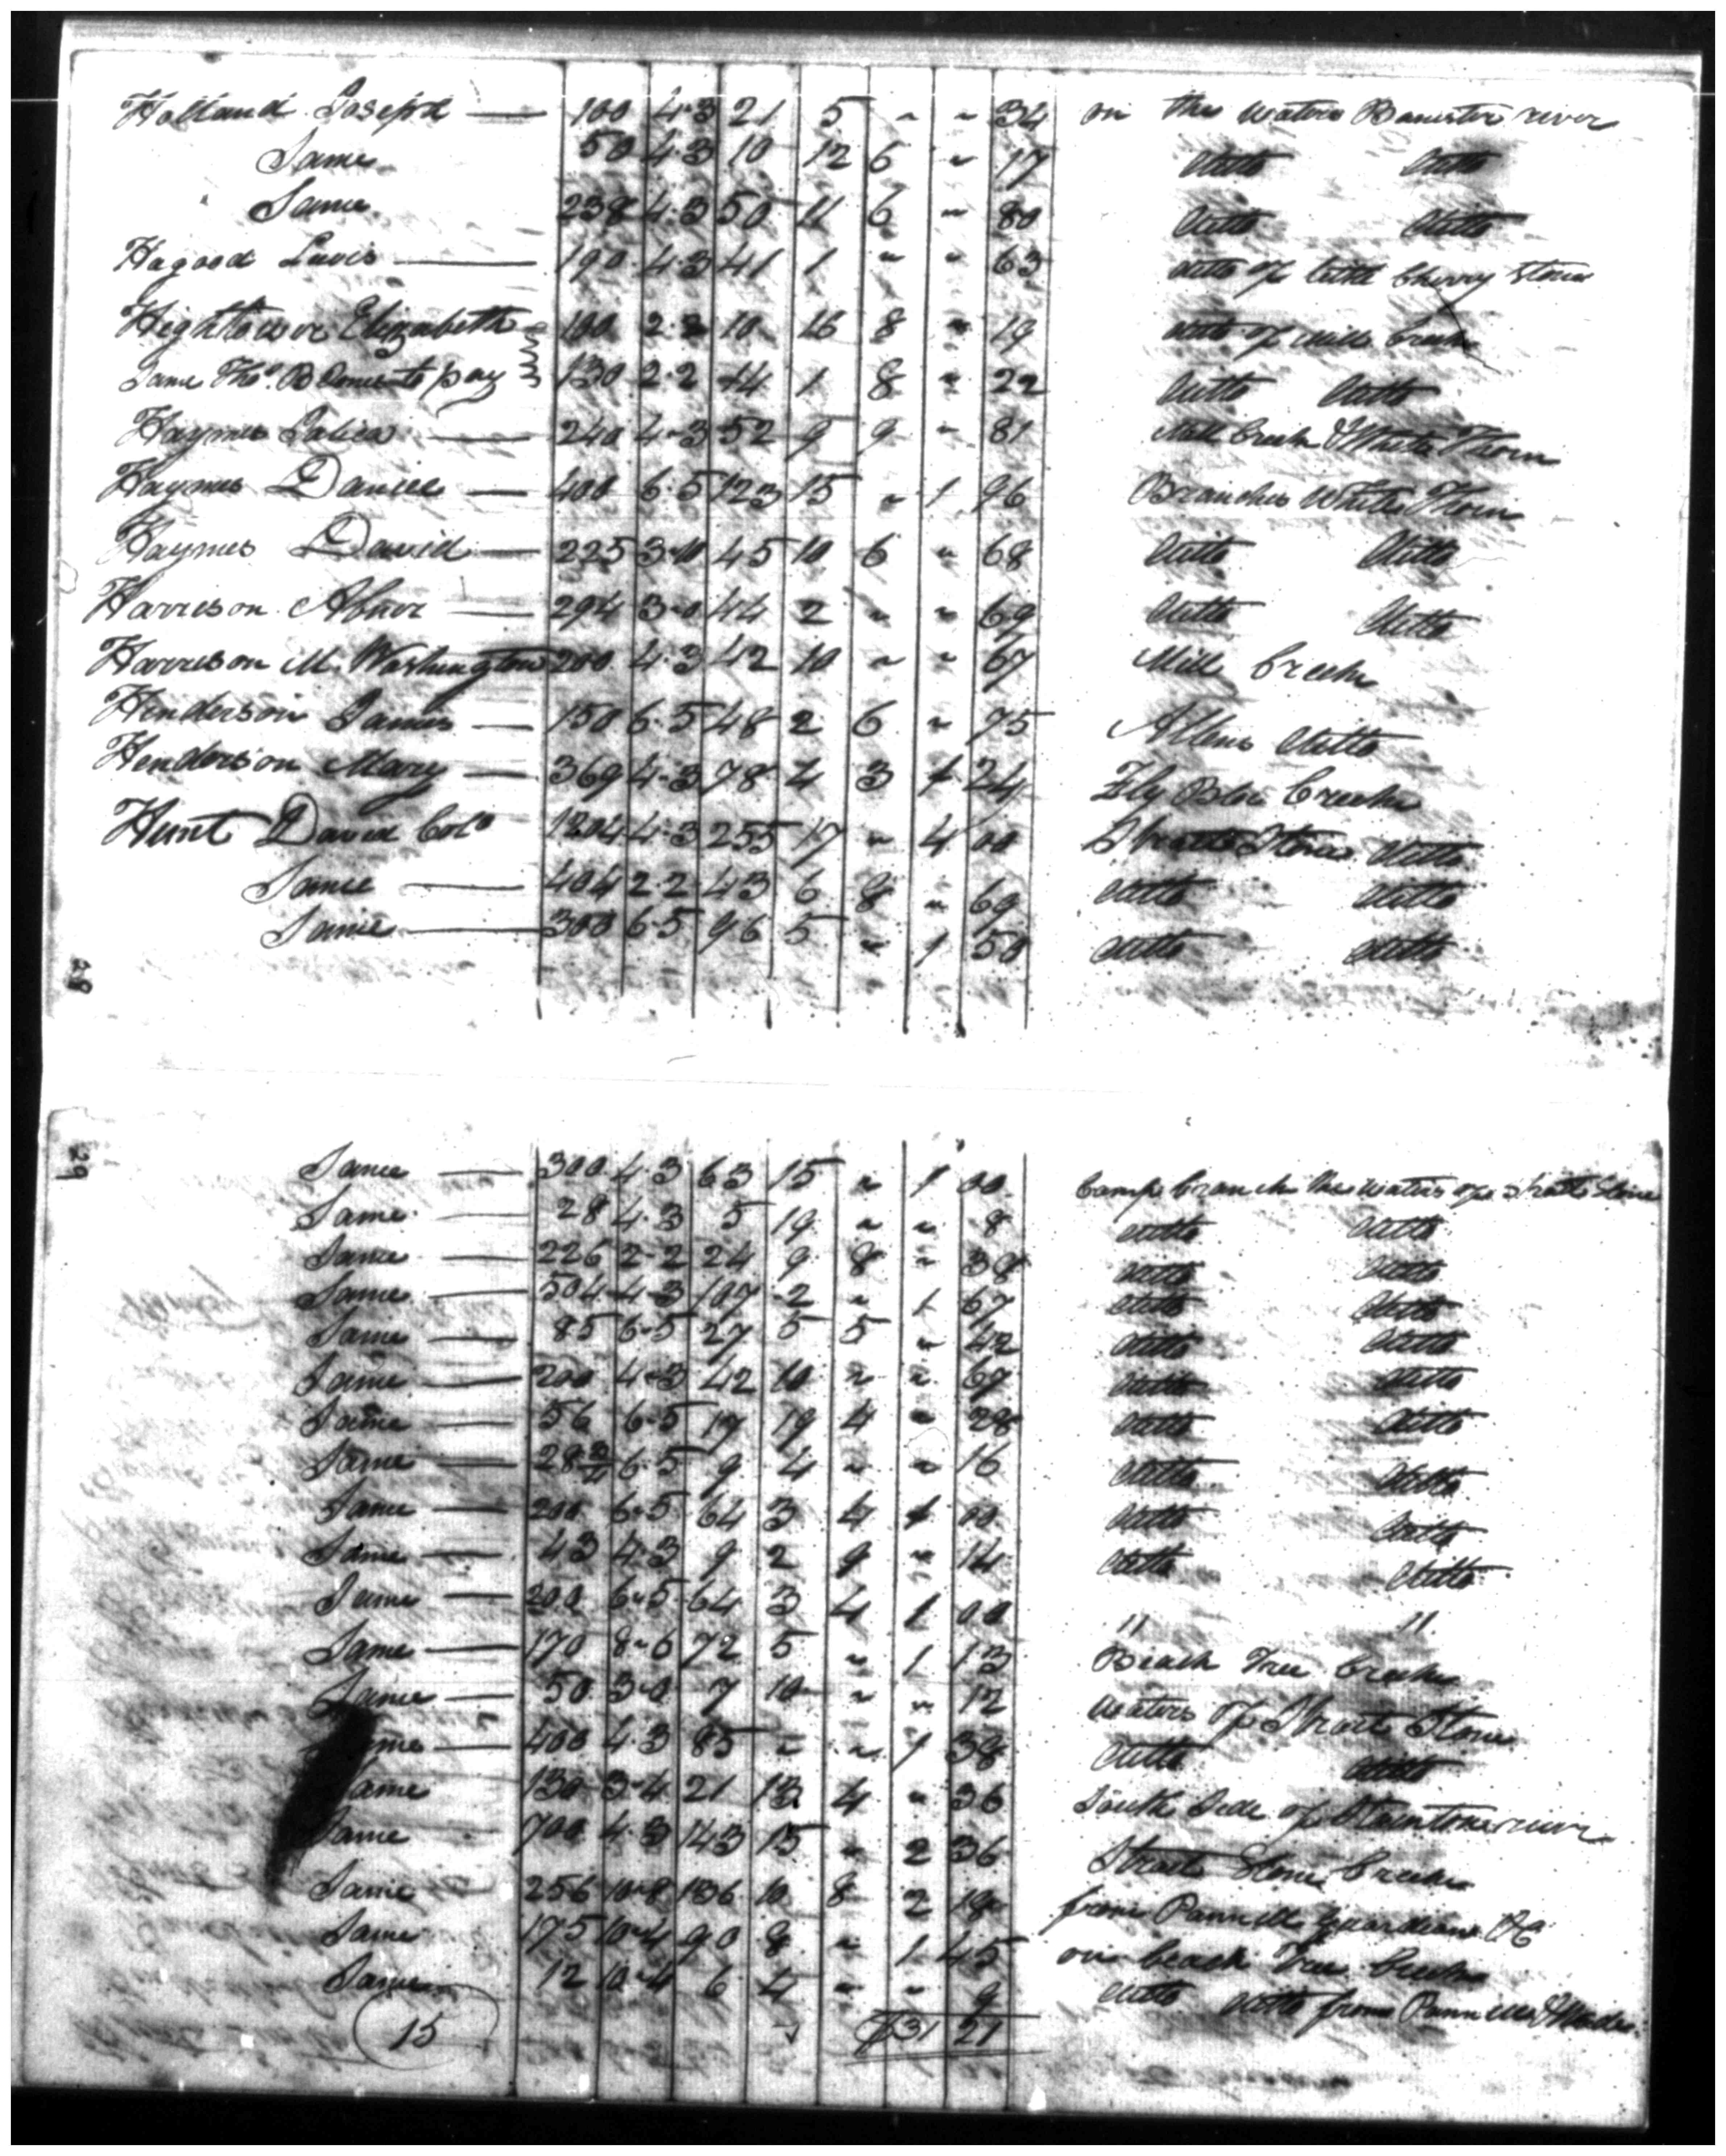 Holland Joseph — 100 4·3 21 5 " " 34 on the waters Banister river
Same 50 4·3 10 12 6 " 17 ditto ditto
Same 238 4·3 50 11 6 " 80 ditto ditto
Hagood Lewis — 190 4·3 41 1 " " 63 ditto of little Cherry Stone
Hightower Elizabeth 100 2·2 10 16 8 " 19 ditto of mill Creek
Same Thos. B to pay 130 2·2 14 1 8 " 22 ditto ditto
Haymes — 240 4·3 52 9 9 " 81 Mill Creek & White Thorn
Haymes Daniel — 400 6·5 123 15 " 1 96 Branches White Thorn
Haymes David — 225 3·10 45 10 6 " 68 ditto ditto
Harrison Abner — 294 3·0 44 2 " " 69 ditto ditto
Harrison M. Washington 200 4·3 42 10 " " 67 Mill Creek
Henderson James — 150 6·5 48 2 6 " 75 Allens ditto
Henderson Mary — 369 4·3 78 4 3 1 24 Fly Blow Creek
Hunt David Colo 1204 4·3 255 17 " 4 00 Strait Stone ditto
Same — 404 2·2 43 6 8 " 69 ditto ditto
Same — 300 6·5 96 5 " 1 50 ditto ditto
28
29
Same — 300 4·3 63 15 " 1 00 Camp branch the waters of Strait Stone
Same — 28 4·3 5 19 " " 8 ditto ditto
Same — 226 2·2 24 9 8 " 38 ditto ditto
Same — 504 4·3 107 2 " 1 67 ditto ditto
Same — 85 6·5 27 5 5 " 42 ditto ditto
Same — 200 4·3 42 10 " " 67 ditto ditto
Same — 56 6·5 17 19 4 " 28 ditto ditto
Same — 28 3/4 6·5 9 4 " " 16 ditto ditto
Same — 200 6·5 64 3 4 1 00 ditto ditto
Same — 43 4·3 9 2 9 " 14 ditto ditto
Same — 200 6·5 64 3 4 1 00 " "
Same — 170 8·6 72 5 " 1 13 Beach Tree Creek
Same — 50 3·0 7 10 " " 12 waters of Strait Stone
Same — 400 4·3 85 " " 1 38 ditto ditto
Same 130 3·4 21 13 4 " 36 South Side of Stauntone river
Same 700 4·3 143 15 " 2 36 Strait Stone Creek
Same 256 10·8 136 10 8 2 18 from Pannill Guardian &c
Same 175 10·4 90 8 " 1 45 on beach Tree Creek
Same 12 10·4 6 4 " " 9 ditto ditto from Pannill &
15 $31 21